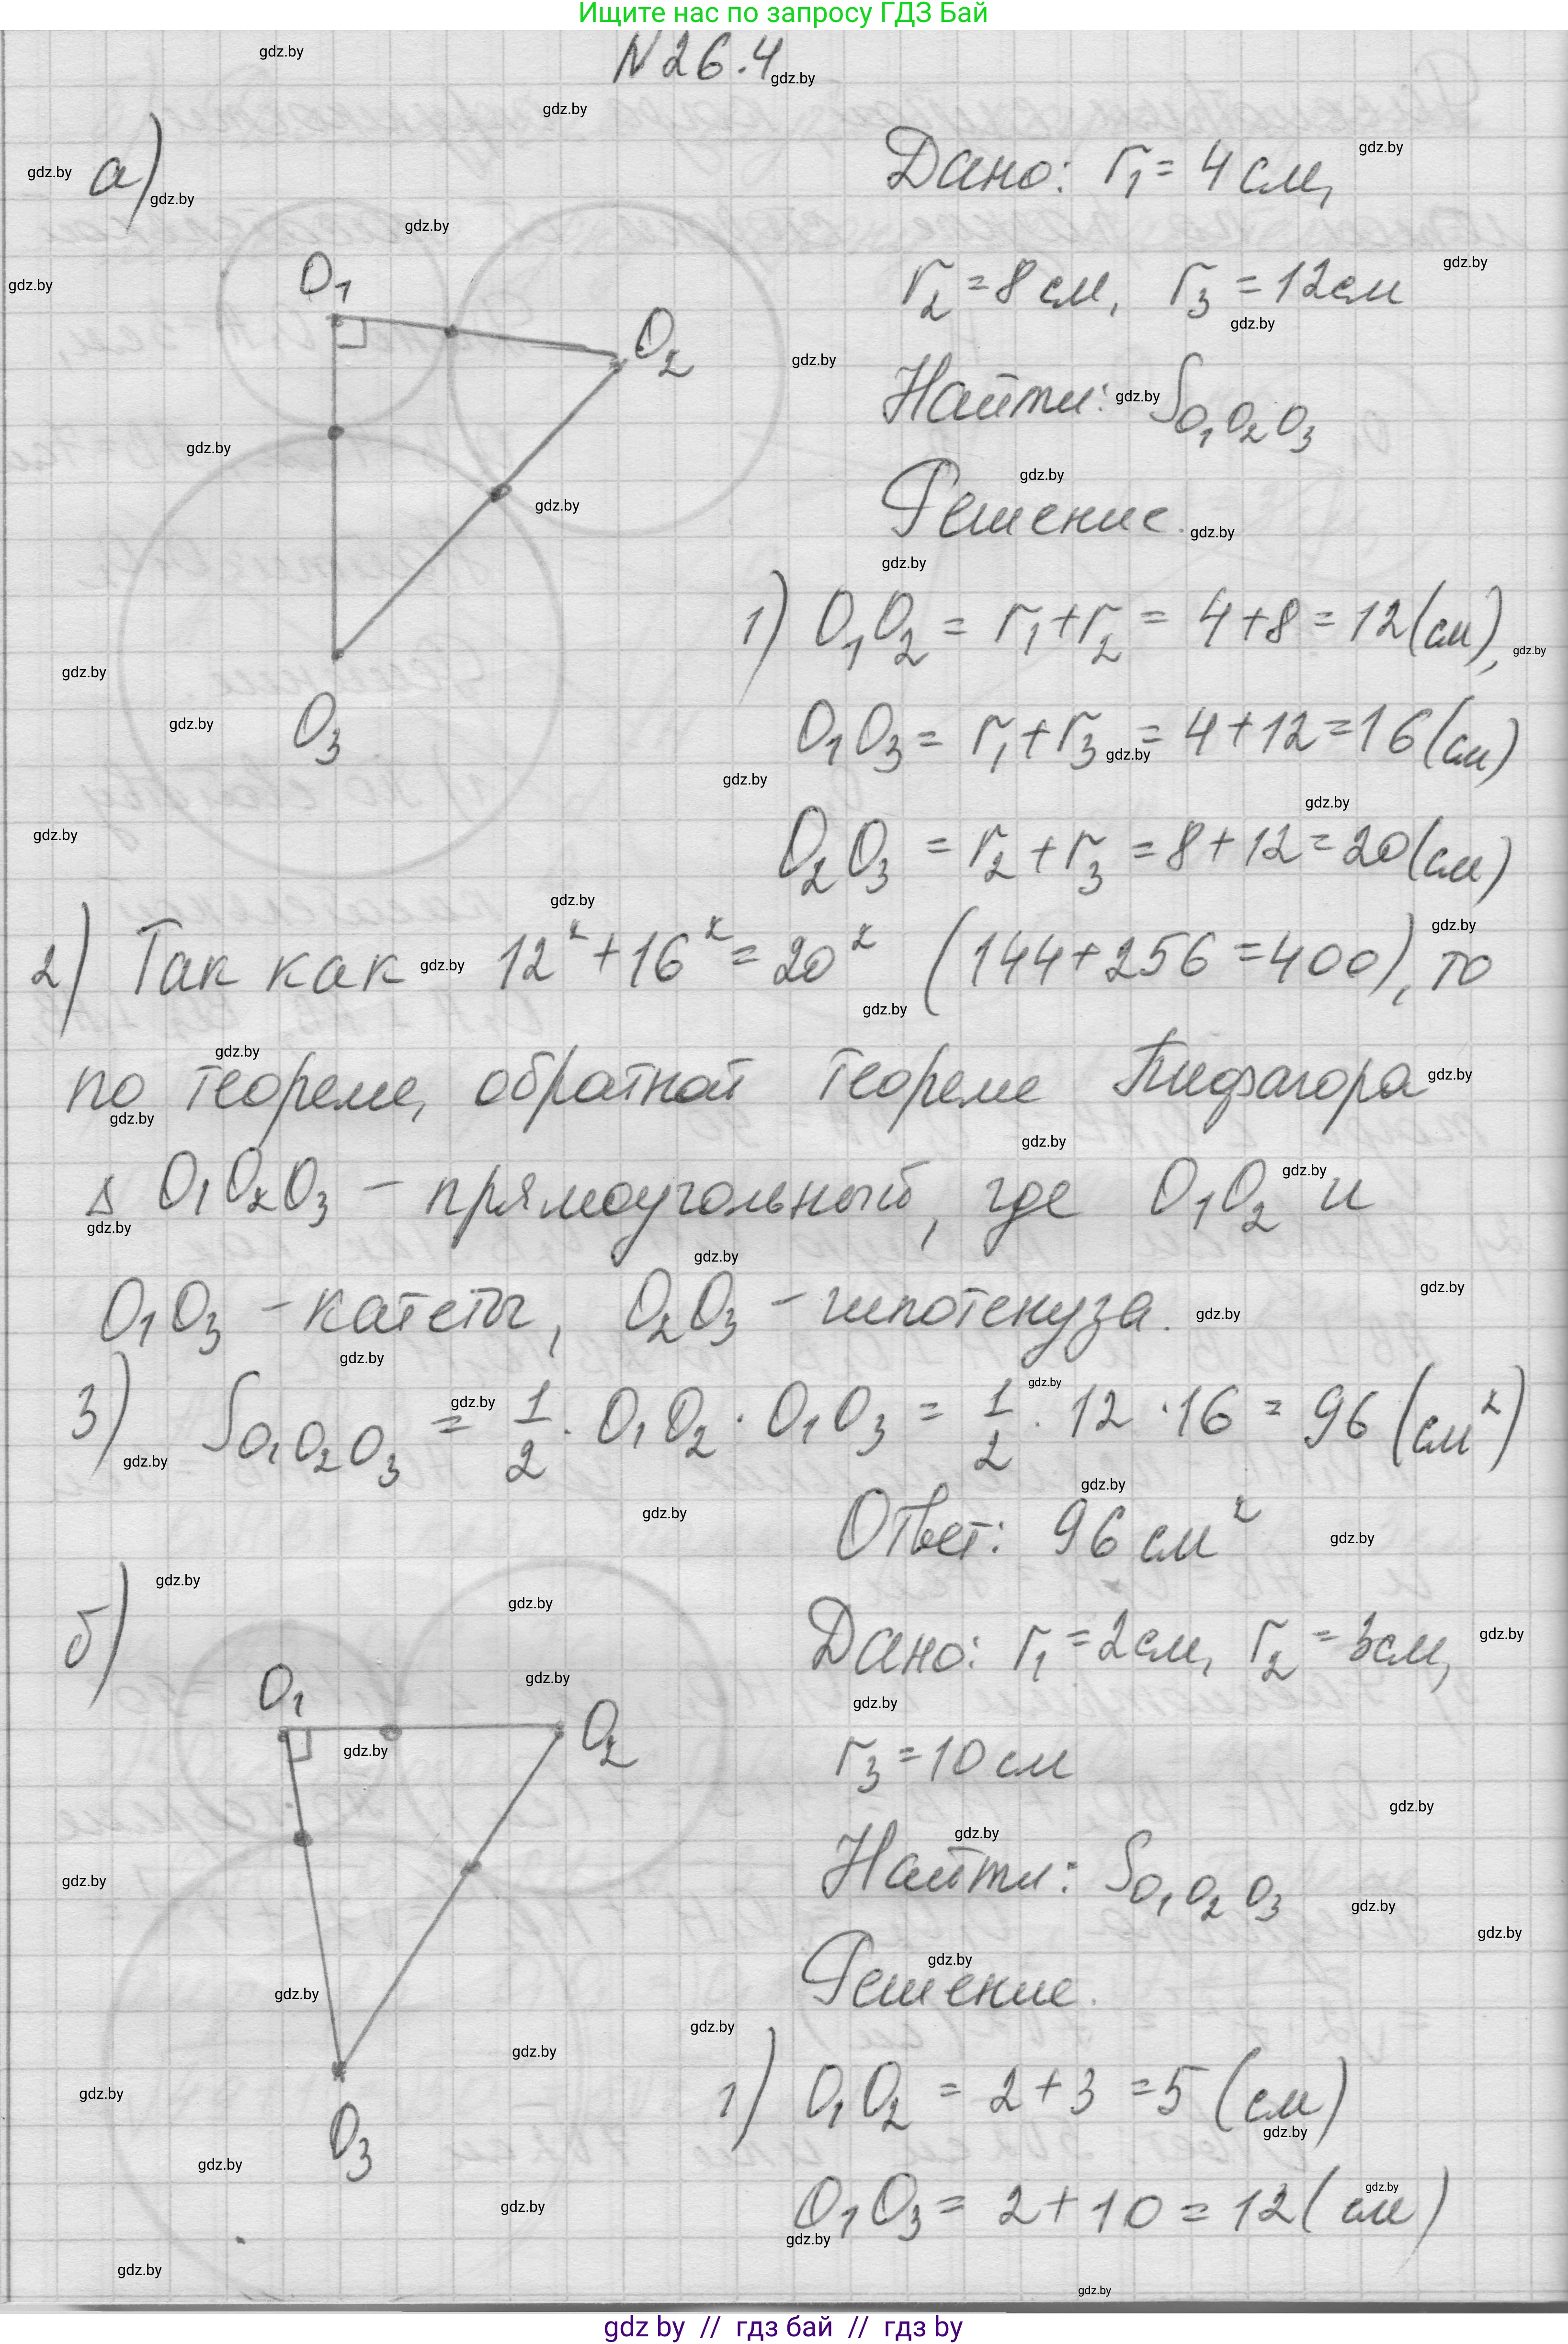 Ищите нас по запросу ГДЗ Бай
N 26.4
а)
Дано: r₁ = 4 см,
r₂ = 8 см, r₃ = 12 см
Найти: S_O₁O₂O₃
Решение.
O₁
O₂
O₃
1) O₁O₂ = r₁ + r₂ = 4 + 8 = 12 (см),
O₁O₃ = r₁ + r₃ = 4 + 12 = 16 (см)
O₂O₃ = r₂ + r₃ = 8 + 12 = 20 (см)
2) Так как 12² + 16² = 20² (144 + 256 = 400), то
по теореме, обратной теореме Пифагора
Δ O₁O₂O₃ – прямоугольный, где O₁O₂ и
O₁O₃ – катеты, O₂O₃ – гипотенуза.
3) S_O₁O₂O₃ = 1/2 · O₁O₂ · O₁O₃ = 1/2 · 12 · 16 = 96 (см²)
Ответ: 96 см²
б)
Дано: r₁ = 2 см, r₂ = 3 см,
r₃ = 10 см
Найти: S_O₁O₂O₃
Решение.
O₁
O₂
O₃
1) O₁O₂ = 2 + 3 = 5 (см)
O₁O₃ = 2 + 10 = 12 (см)
gdz.by
gdz by // гдз бай // гдз by